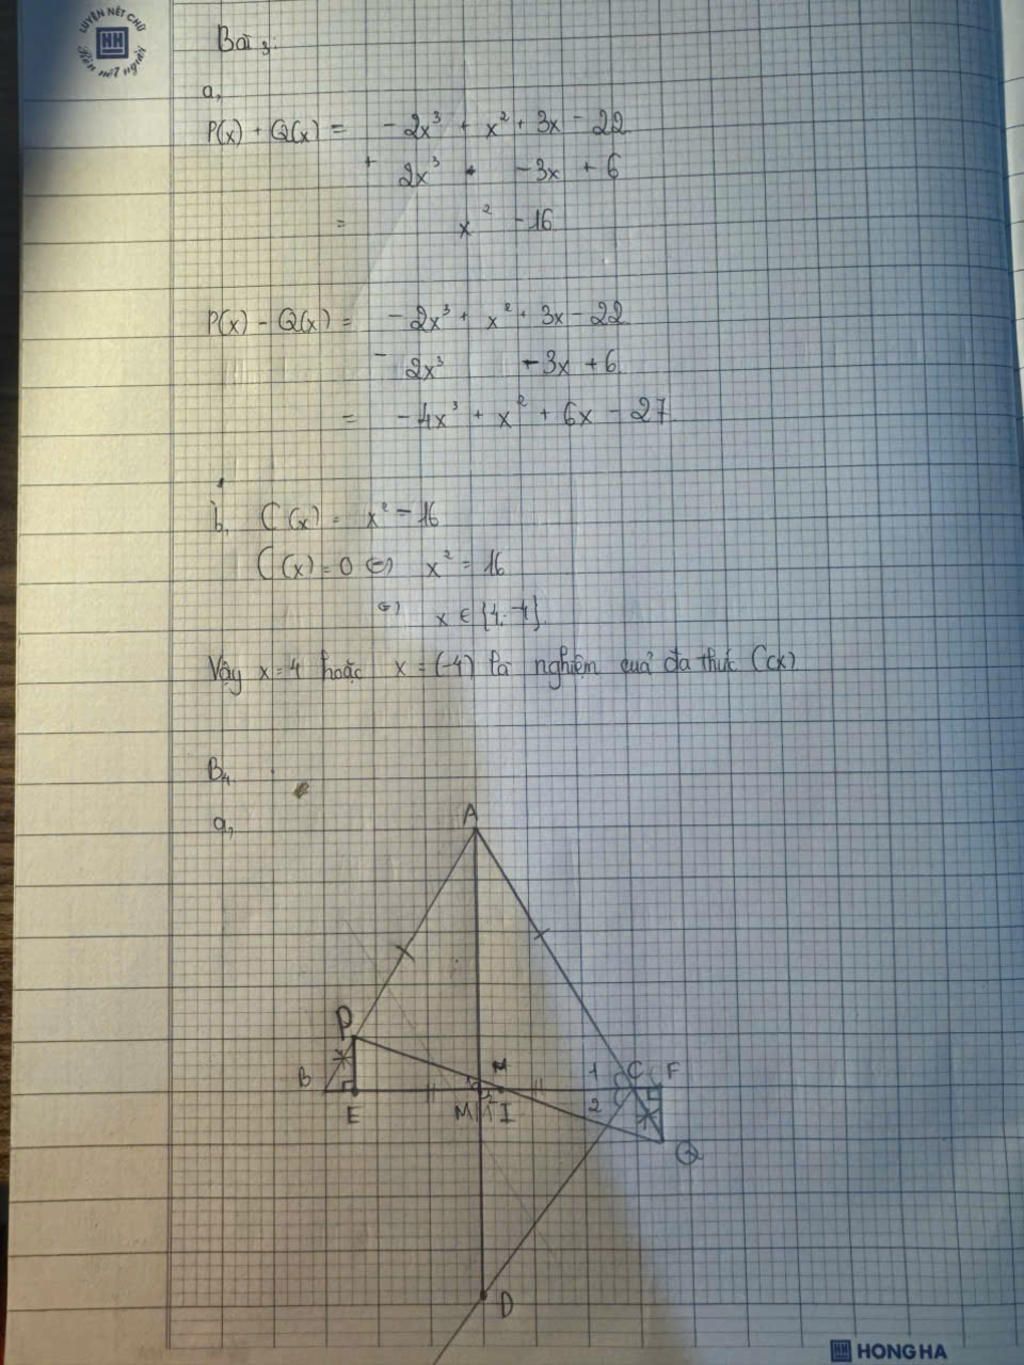 LUYỆN NÉT CHỮ
HH
Rèn nết người
Bài 3:
a,
P(x) + Q(x) = - 2x³ + x² + 3x - 22
+ 2x³ - 3x + 6
= x² - 16
P(x) - Q(x) = - 2x³ + x² + 3x - 22
- 2x³ - 3x + 6
= - 4x³ + x² + 6x - 27
b, C(x) = x² - 16
C(x) = 0 <=> x² = 16
<=> x ∈ {4; -4}
Vậy x = 4 hoặc x = (-4) là nghiệm của đa thức C(x)
B4
a,
A
P
B M 1 C F
E M 1 2 I 2
Q
D
HH HONG HA